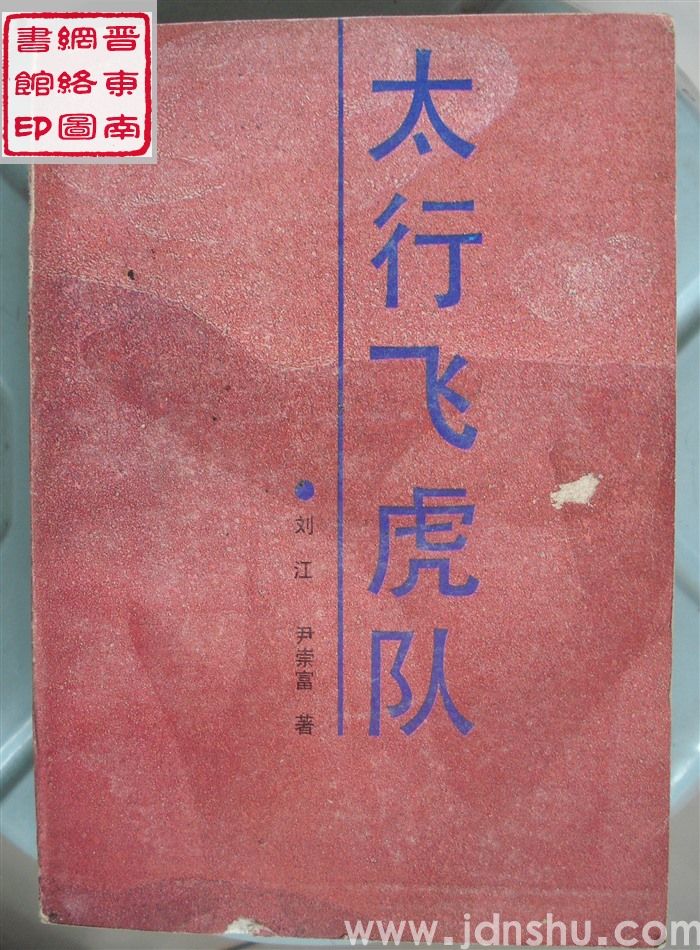 晋東南
網絡圖
書館印
太行飞虎队
刘江 尹崇富 著
www.jdnshu.com